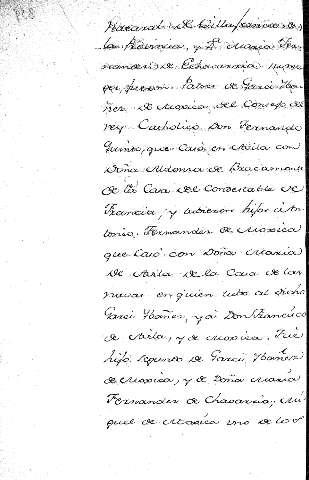 Natural de Villafranca de
la Provincia, y D.ª Maria Fer-
nandez de Echavarria su mu-
ger, fueron Padres de Garci Yba-
ñez de Moxica, del Consejo del
rey Catholico, Don Fernando
Quinto, que casó en Avila con
Doña Aldonza de Bracamonte
de la Casa del Condestable de
Francia, y tubieron hijos á An-
tonio Fernandez de Moxica
que Casó con Doña Maria
de Avila de la Casa de las
navas en quien tubo al dicho
Garci Ybañez, y á Don Francisco
de Avila, y de Moxica. Fué
hijo segundo de Garci Ybañez
de Moxica, y de Doña Maria
Fernandez de Chavarria, Mi-
guel de Moxica uno de los